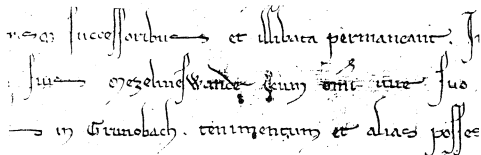 successoribus et illibata permaneant. In
suis mezelinesWande cum omi iure suo
in Grunobach. tenimentum et alias posses